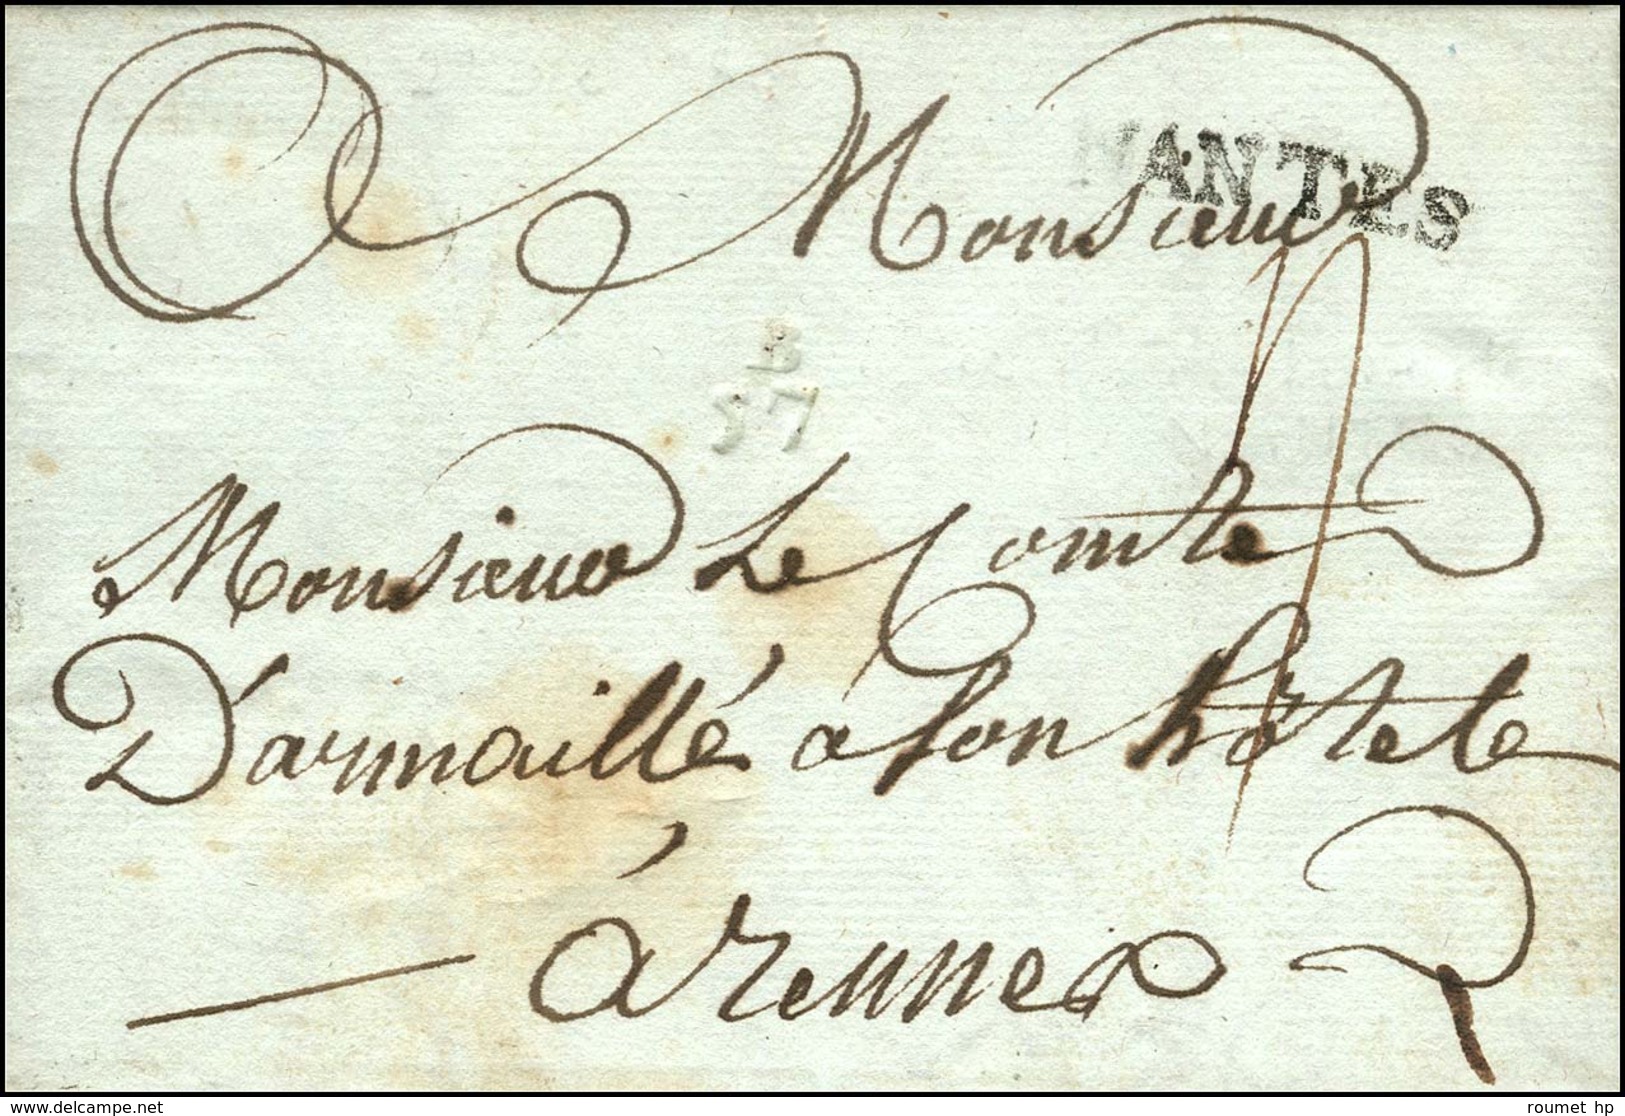 Monsieur
NANTES
B
57
Monsieur Le Comte
D'armaillé à son hôtel
à rennes
www.delcampe.net
roumet hp